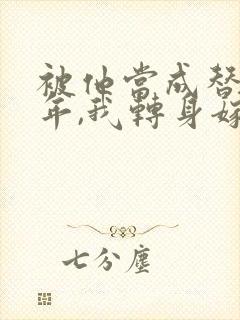 被他當成替
年,我轉身嫁
七分塵